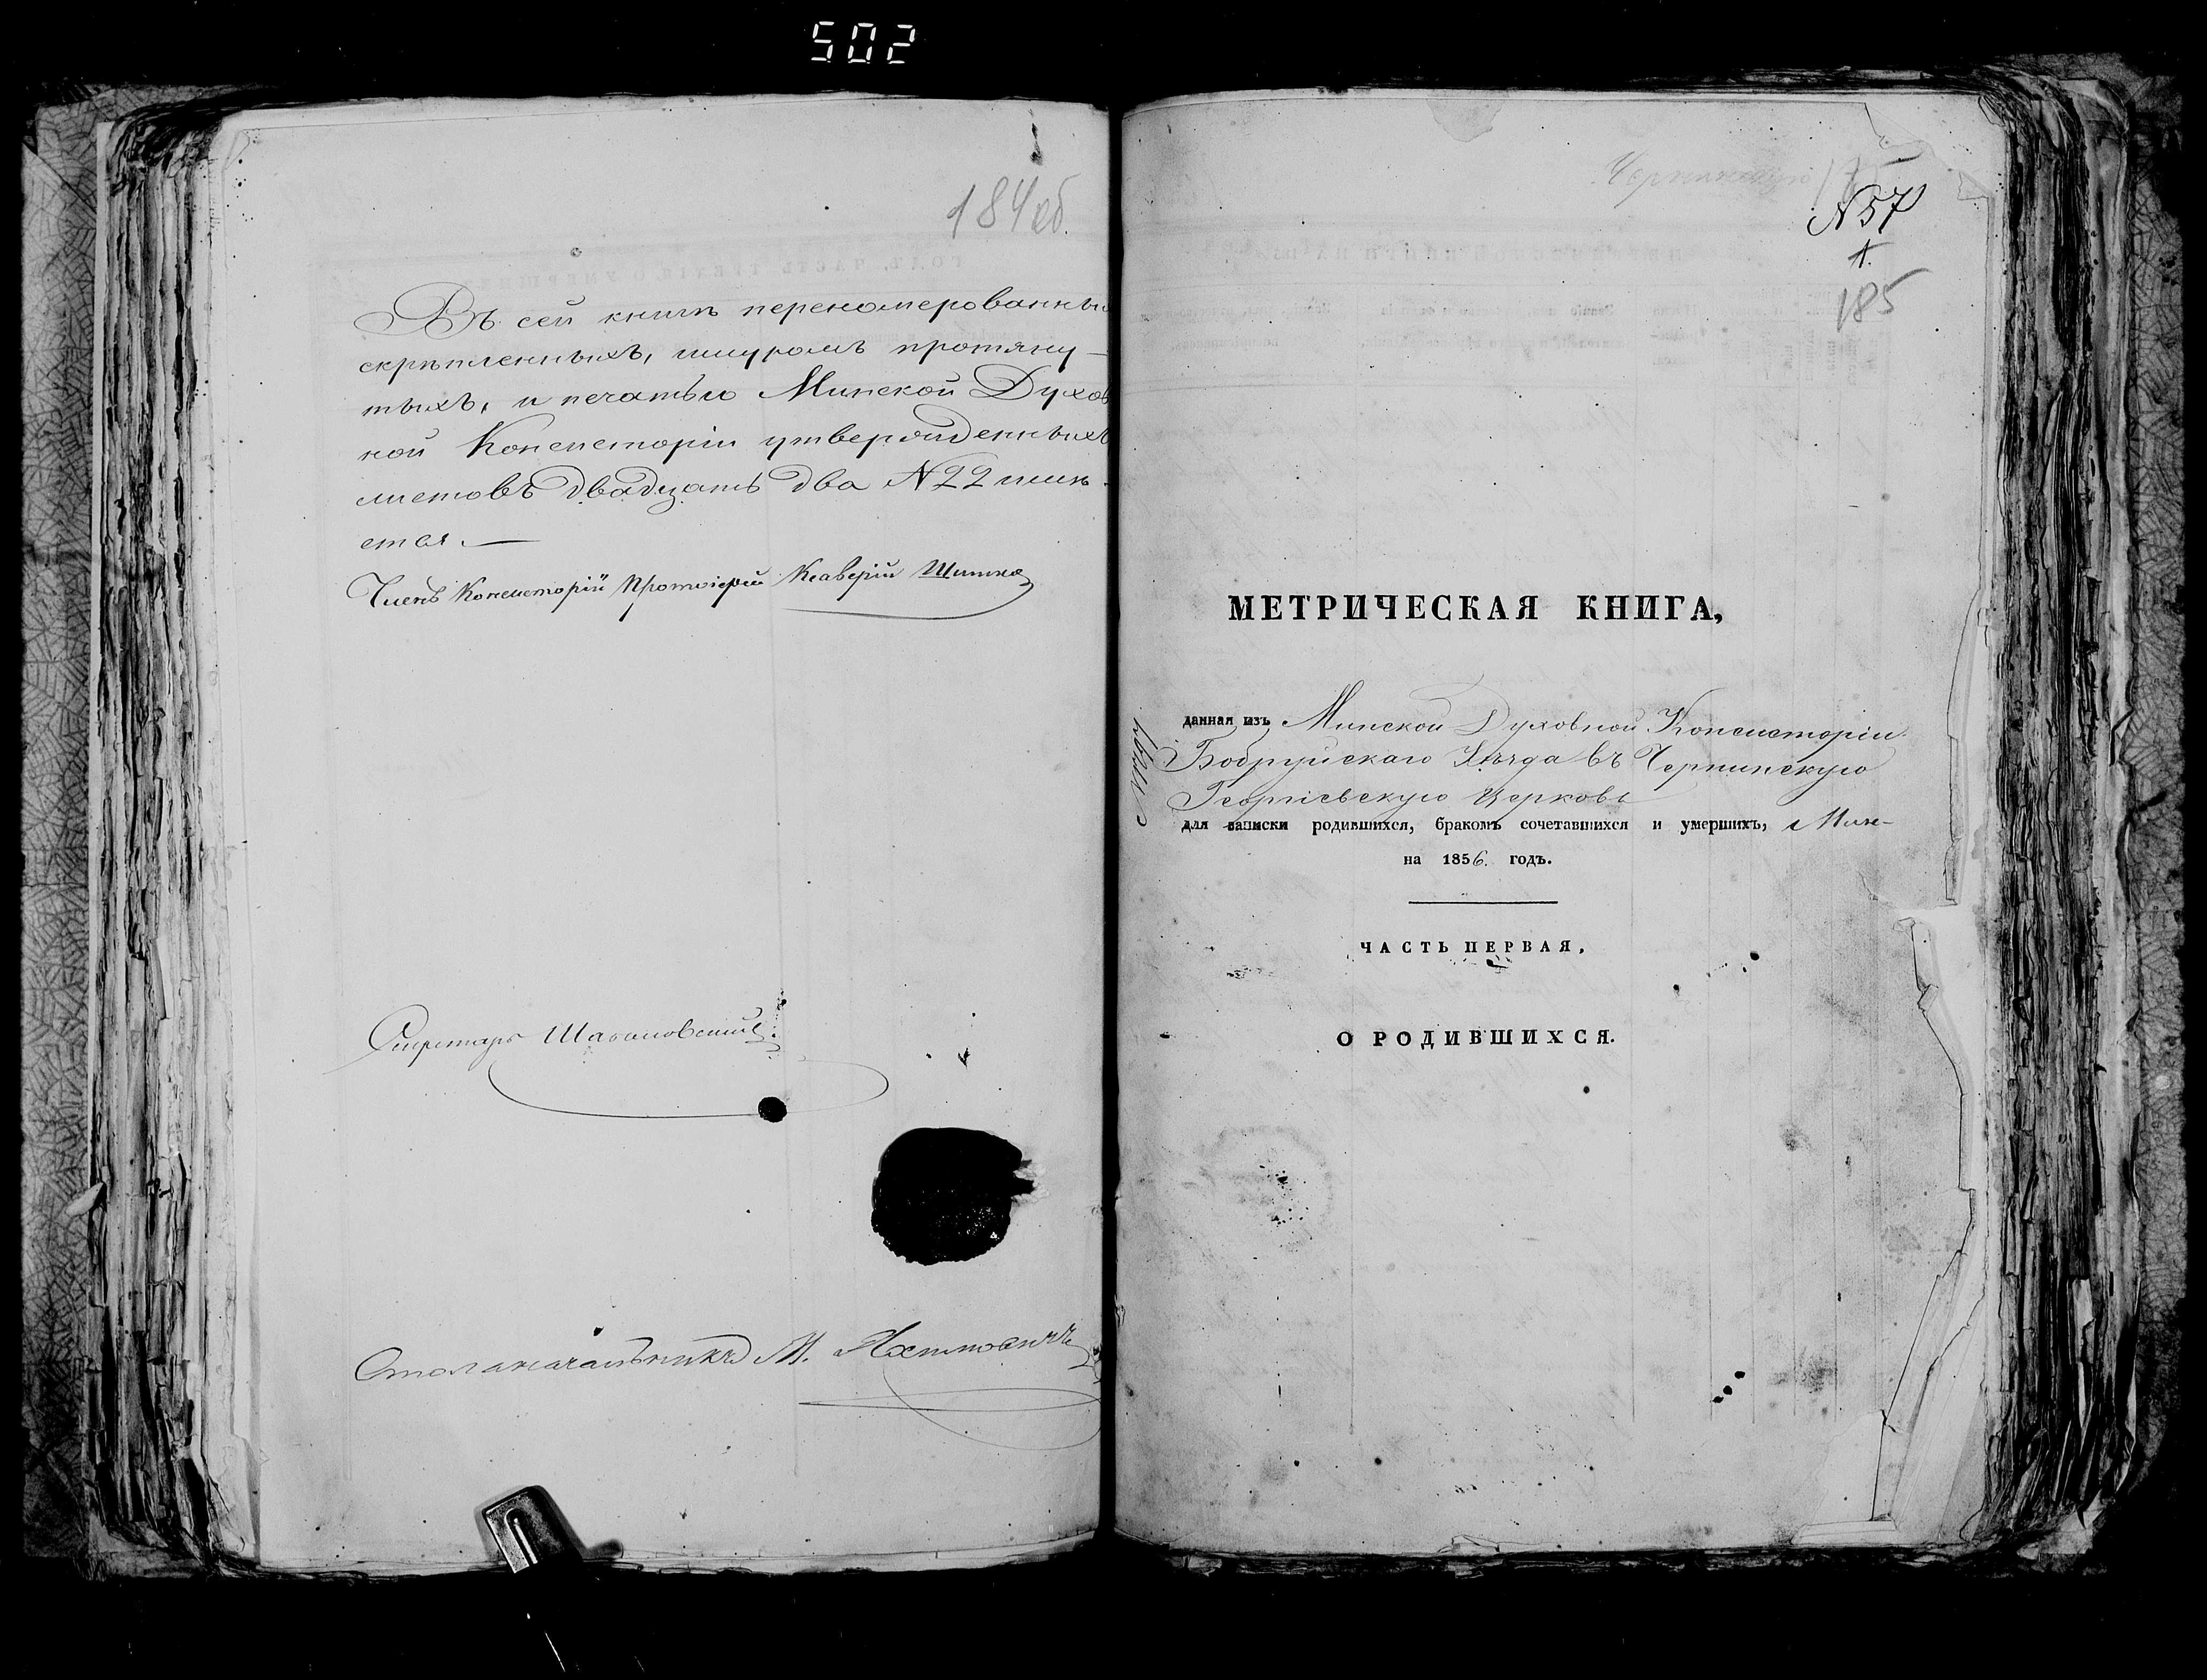 502
184 об.
Въ сей книгѣ переномерованныхъ
скрѣпленныхъ, шнуромъ протяну-
тыхъ, и печатью Минской Духов
ной Консисторіи утвержденныхъ
листовъ двадцать два №22 имѣ-
ется.—
Членъ Консисторіи Протоіерей Ксаверій
Секретарь
Столоначальникъ М.
№57
1.
185
МЕТРИЧЕСКАЯ КНИГА,
данная изъ Минской Духовной Консисторіи
Бобруйскаго Уѣзда въ Чернинскую
Георгіевскую Церковь
для записки родившихся, бракомъ сочетавшихся и умершихъ,
на 1856. годъ.
ЧАСТЬ ПЕРВАЯ,
О РОДИВШИХСЯ.